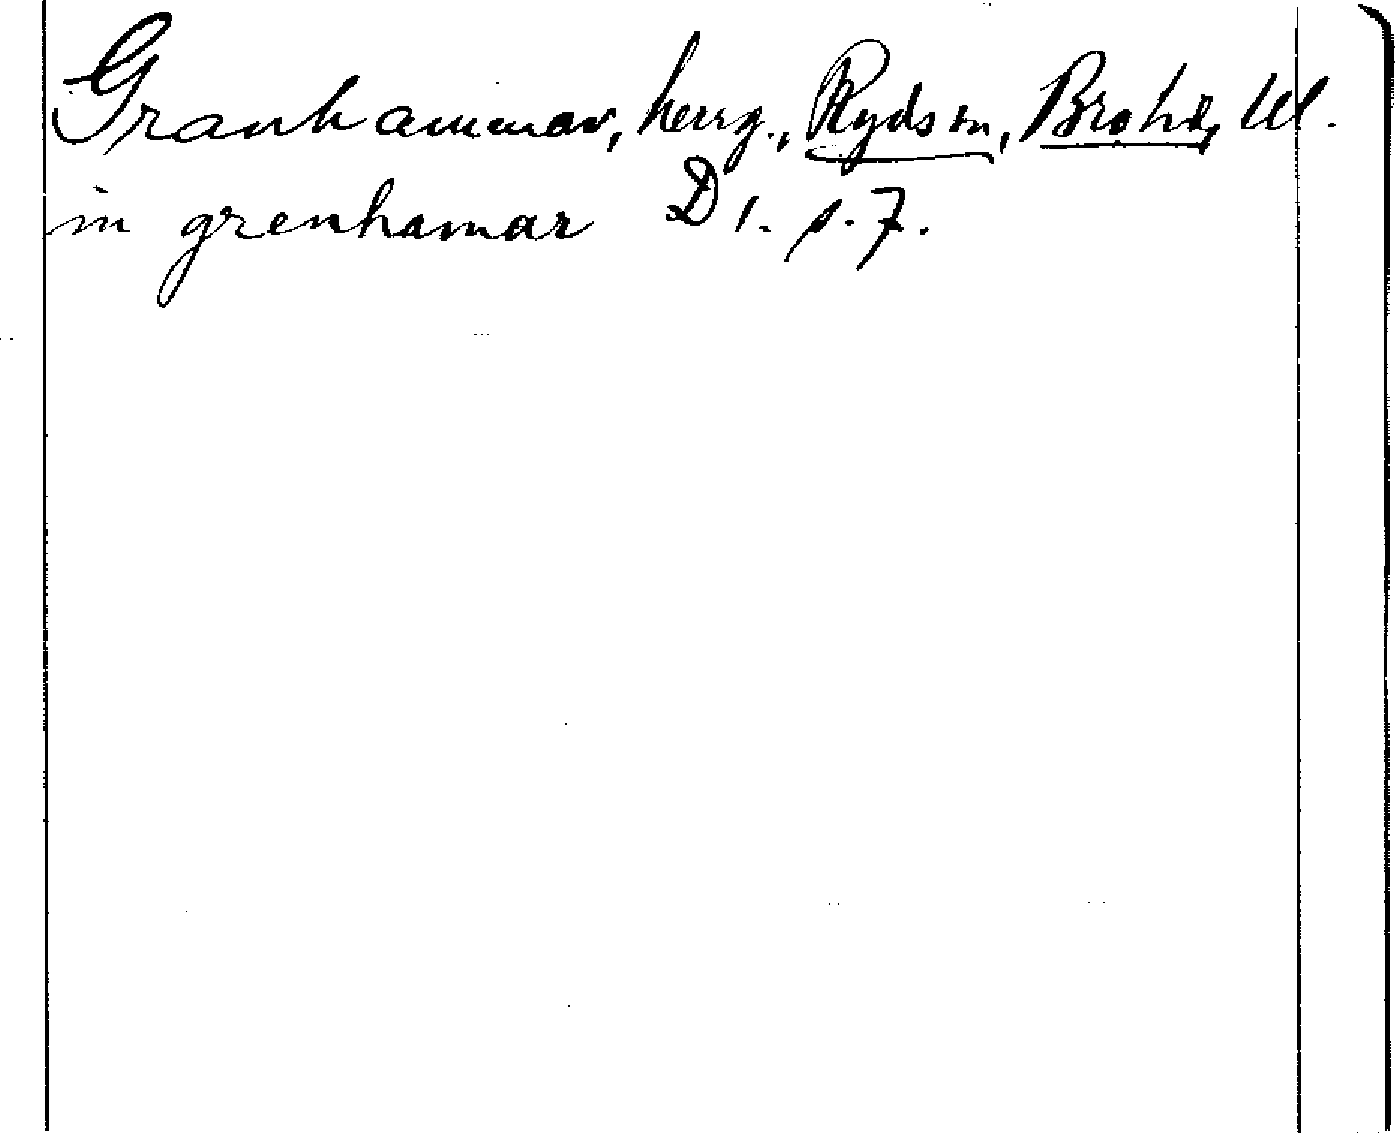 Granhammar, herrg., Ryds sn, Bro hd, Ul.
in grenhamar D 1. s. 7.